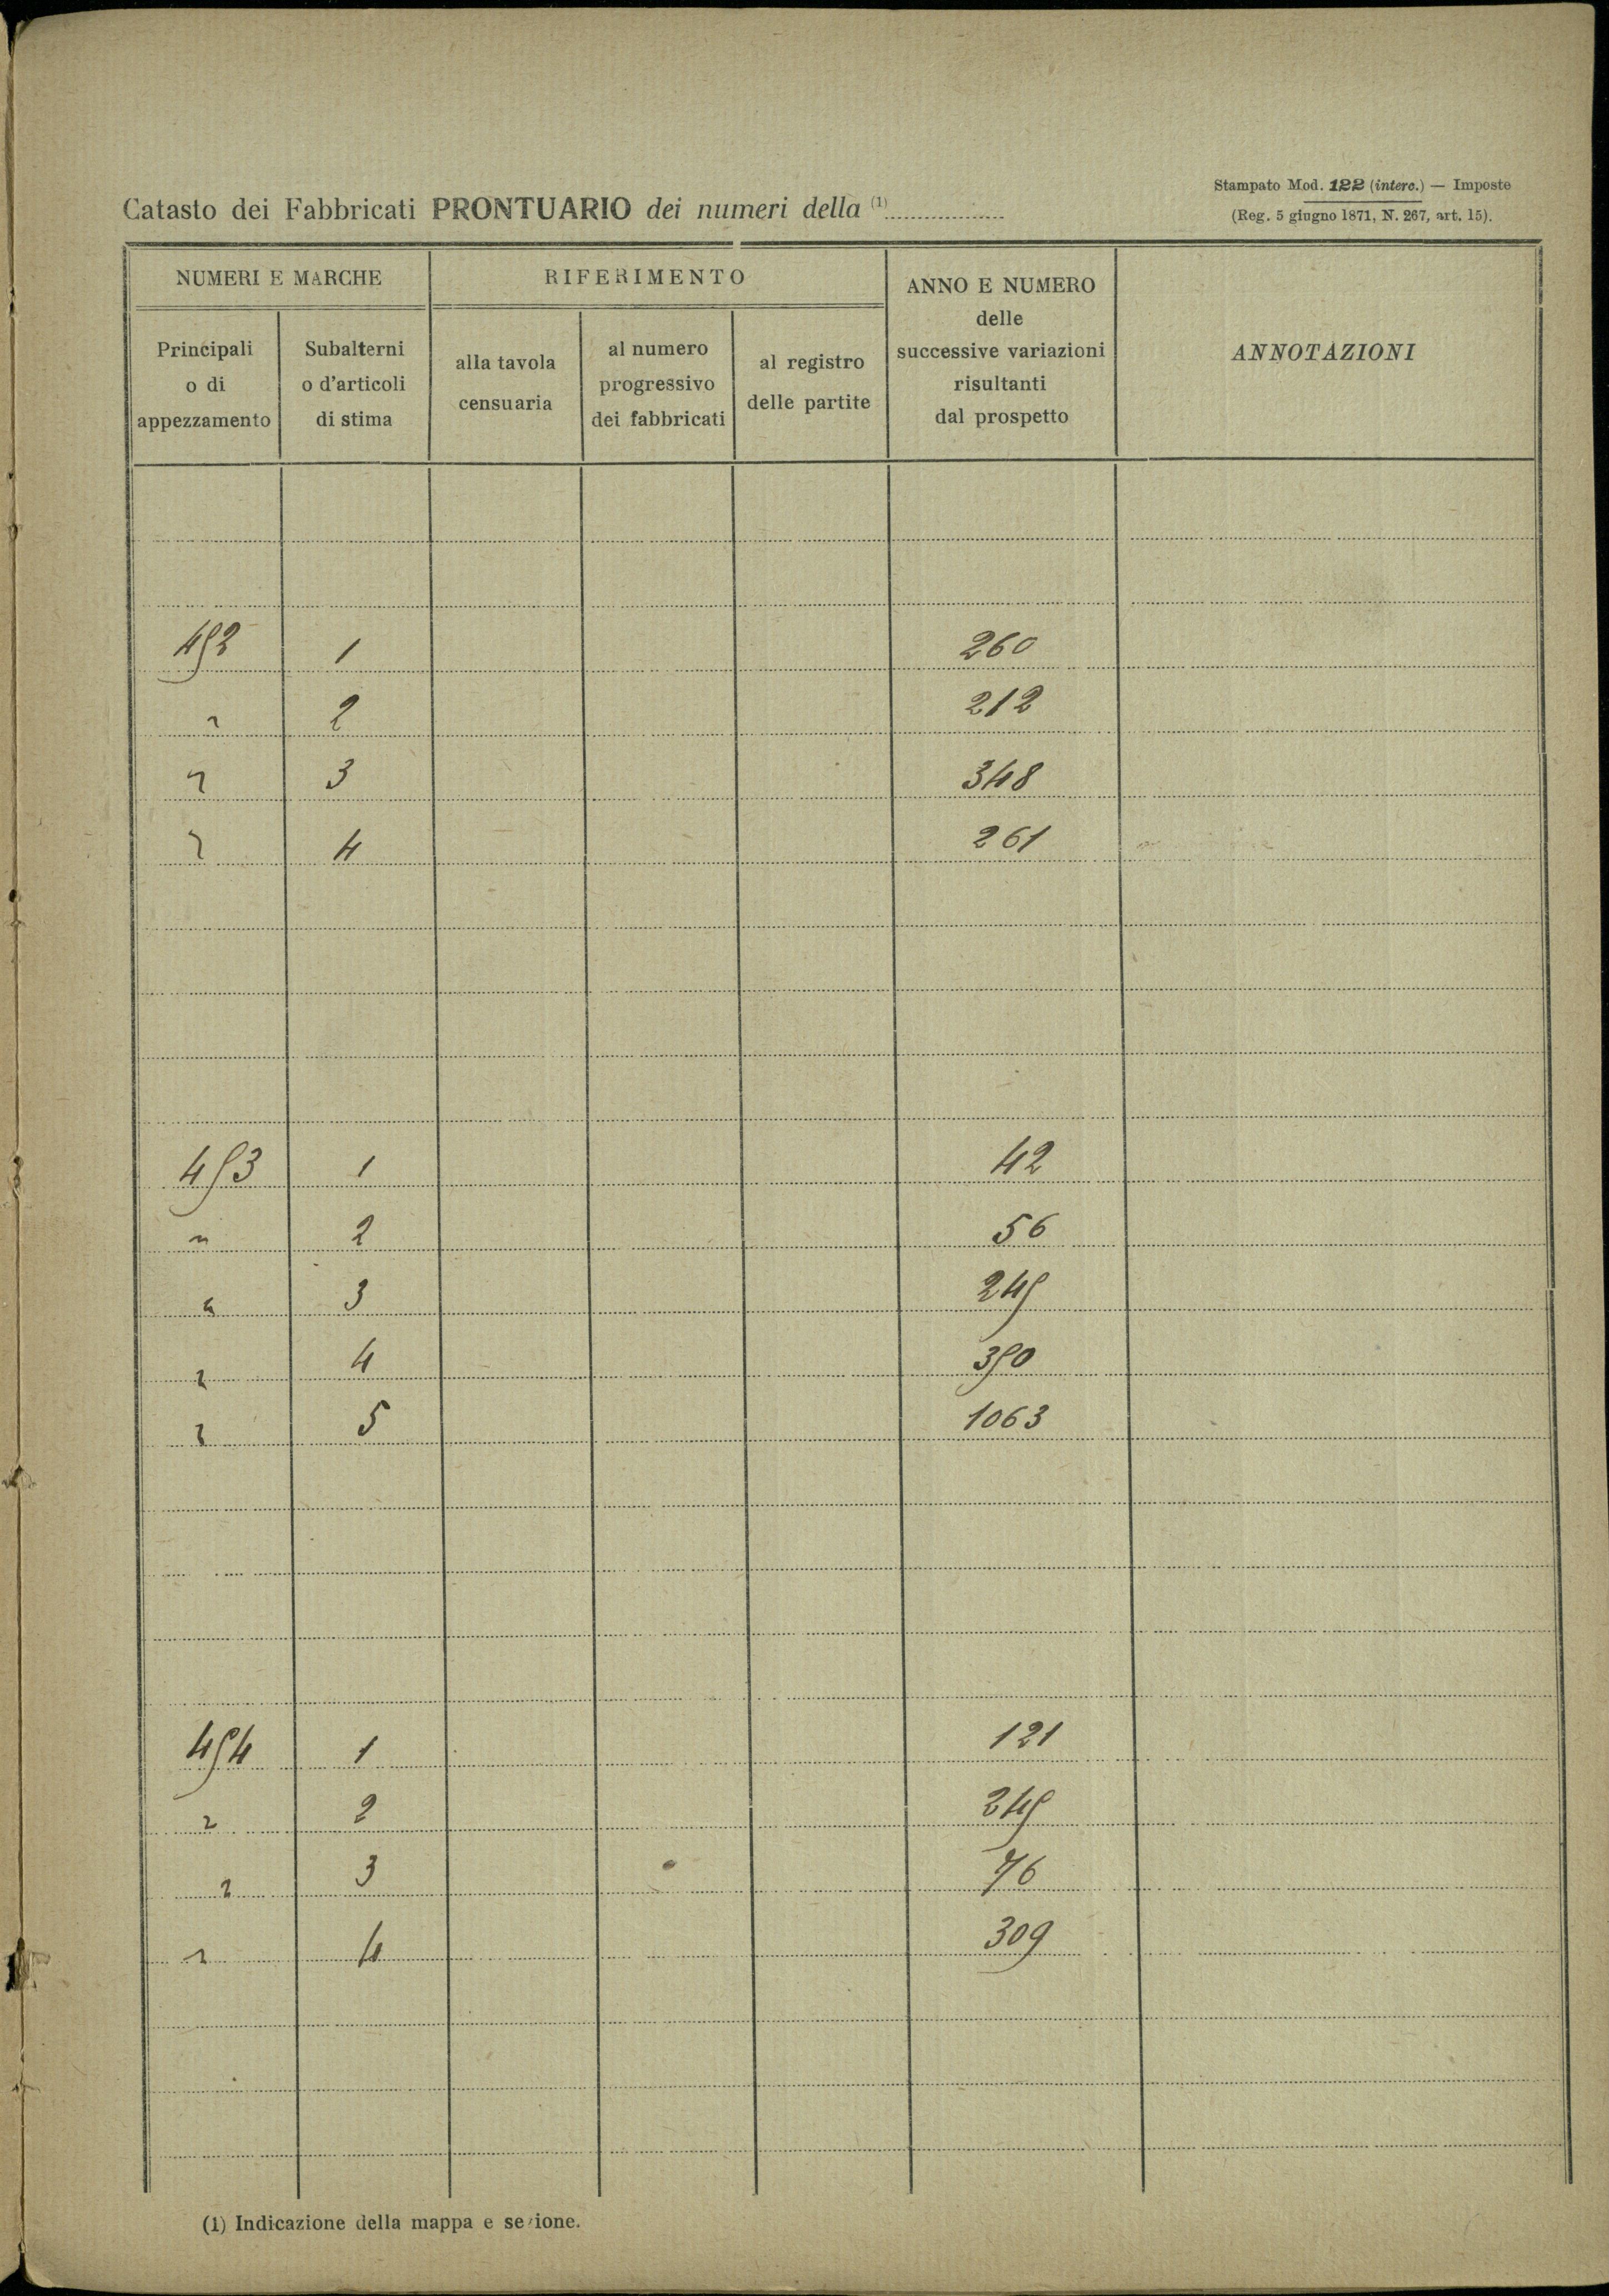 Catasto dei Fabbricati PRONTUARIO dei numeri della (1)
Stampato Mod. 122 (interc.) — Imposte
(Reg. 5 giugno 1871, N. 267, art. 15).
NUMERI E MARCHE
RIFERIMENTO
ANNO E NUMERO
delle
successive variazioni
risultanti
dal prospetto
ANNOTAZIONI
Principali
o di
appezzamento
Subalterni
o d'articoli
di stima
alla tavola
censuaria
al numero
progressivo
dei fabbricati
al registro
delle partite
492 1 260
" 2 212
" 3 348
" 4 261
493 1 42
" 2 56
" 3 249
" 4 390
" 5 1063
494 1 121
" 2 249
" 3 76
" 4 309
(1) Indicazione della mappa e sezione.